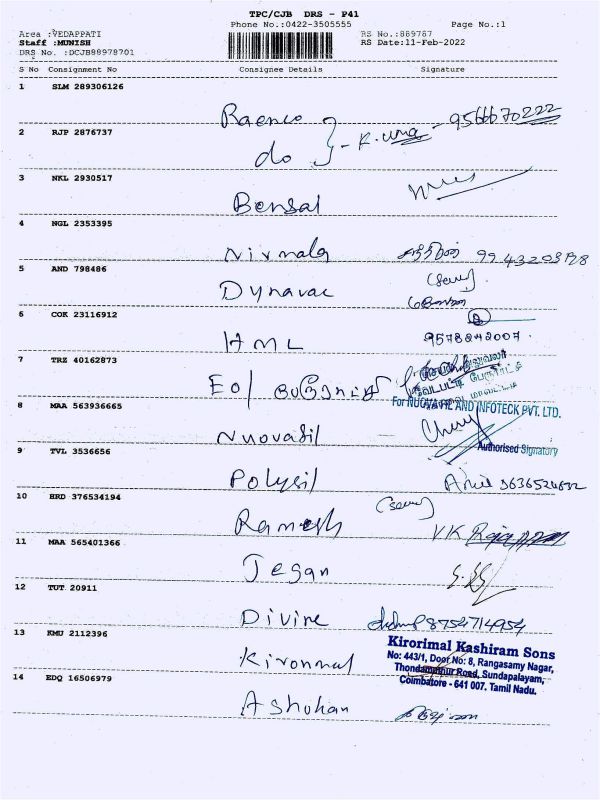 TPC/CJB DRS - P41
Phone No.:0422-3505555 Page No.:1
Area :VEDAPPATI RS No.:889787
Staff :MUNISH RS Date:11-Feb-2022
DRS No. :DCJB88978701
S No Consignment No Consignee Details Signature
1 SLM 289306126
Raenco
2 RJP 2876737
do } - K. uma - 9566670222
3 NKL 2930517
Bensal
4 NGL 2353395
Nirmala
5 AND 798486
Dynavac (Seal)
6 COK 23116912
HML 9578242007.
7 TRZ 40162873
EO/
8 MAA 563936665
For NUOVA FIL AND INFOTECK PVT. LTD.
Nuovafil
Authorised Signatory
9 TVL 3536656
Polysil
10 HRD 376534194 (Seal)
Ramesh VK
11 MAA 565401366
Jegan
12 TUT 20911
Divine 8754714954
13 KMU 2112396
Kirorimal Kashiram Sons
No: 443/1, Door No: 8, Rangasamy Nagar,
Kirorimal
Thondamuthur Road, Sundapalayam,
14 EDQ 16506979
Coimbatore - 641 007. Tamil Nadu.
Ashokan